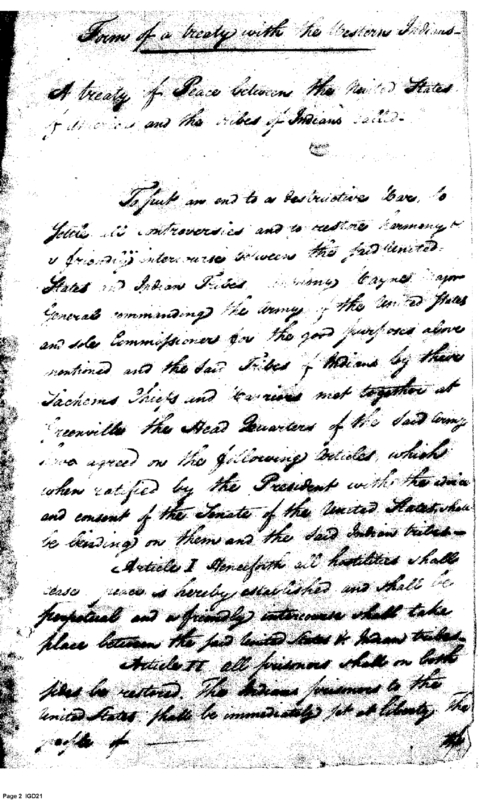 Form of a treaty with the Western Indians
A treaty of Peace between the United States
of America and the tribes of Indians called
To put an end to a destructive War, to
settle all controversies and to restore harmony &
a friendly intercourse between the said United
States and Indian Tribes Anthony Wayne Major
General commanding the Army of the United States
and sole Commissioner for the good purposes above
mentioned and the said Tribes of Indians by there
Sachems Chiefs and Warriors met together at
Greenville the Head Quarters of the said army
have agreed on the following articles, which
when ratified by the President with the advice
and consent of the Senate of the United States, shall
be binding on them and the said Indian tribes—
Article I Henceforth all hostilities shall
cease peace is hereby established and shall be
perpetual and a friendly intercourse shall take
place between the said United States & Indian tribes—
Article II all prisoners shall on both
sides be restored. The Indians prisoners to the
United States, shall be immediately set at liberty. The
people of
Page 2 IGD21